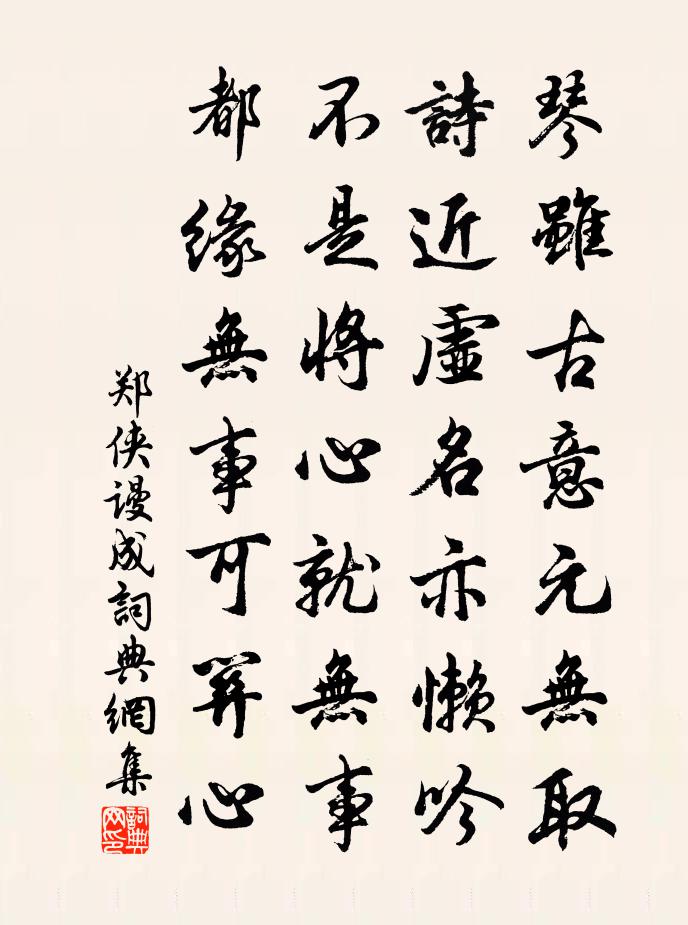 琴雖古意元無取
詩近虛名亦懶吟
不是將心就無事
都緣無事可算心
郑侠谩成詞典網集
詞典網印